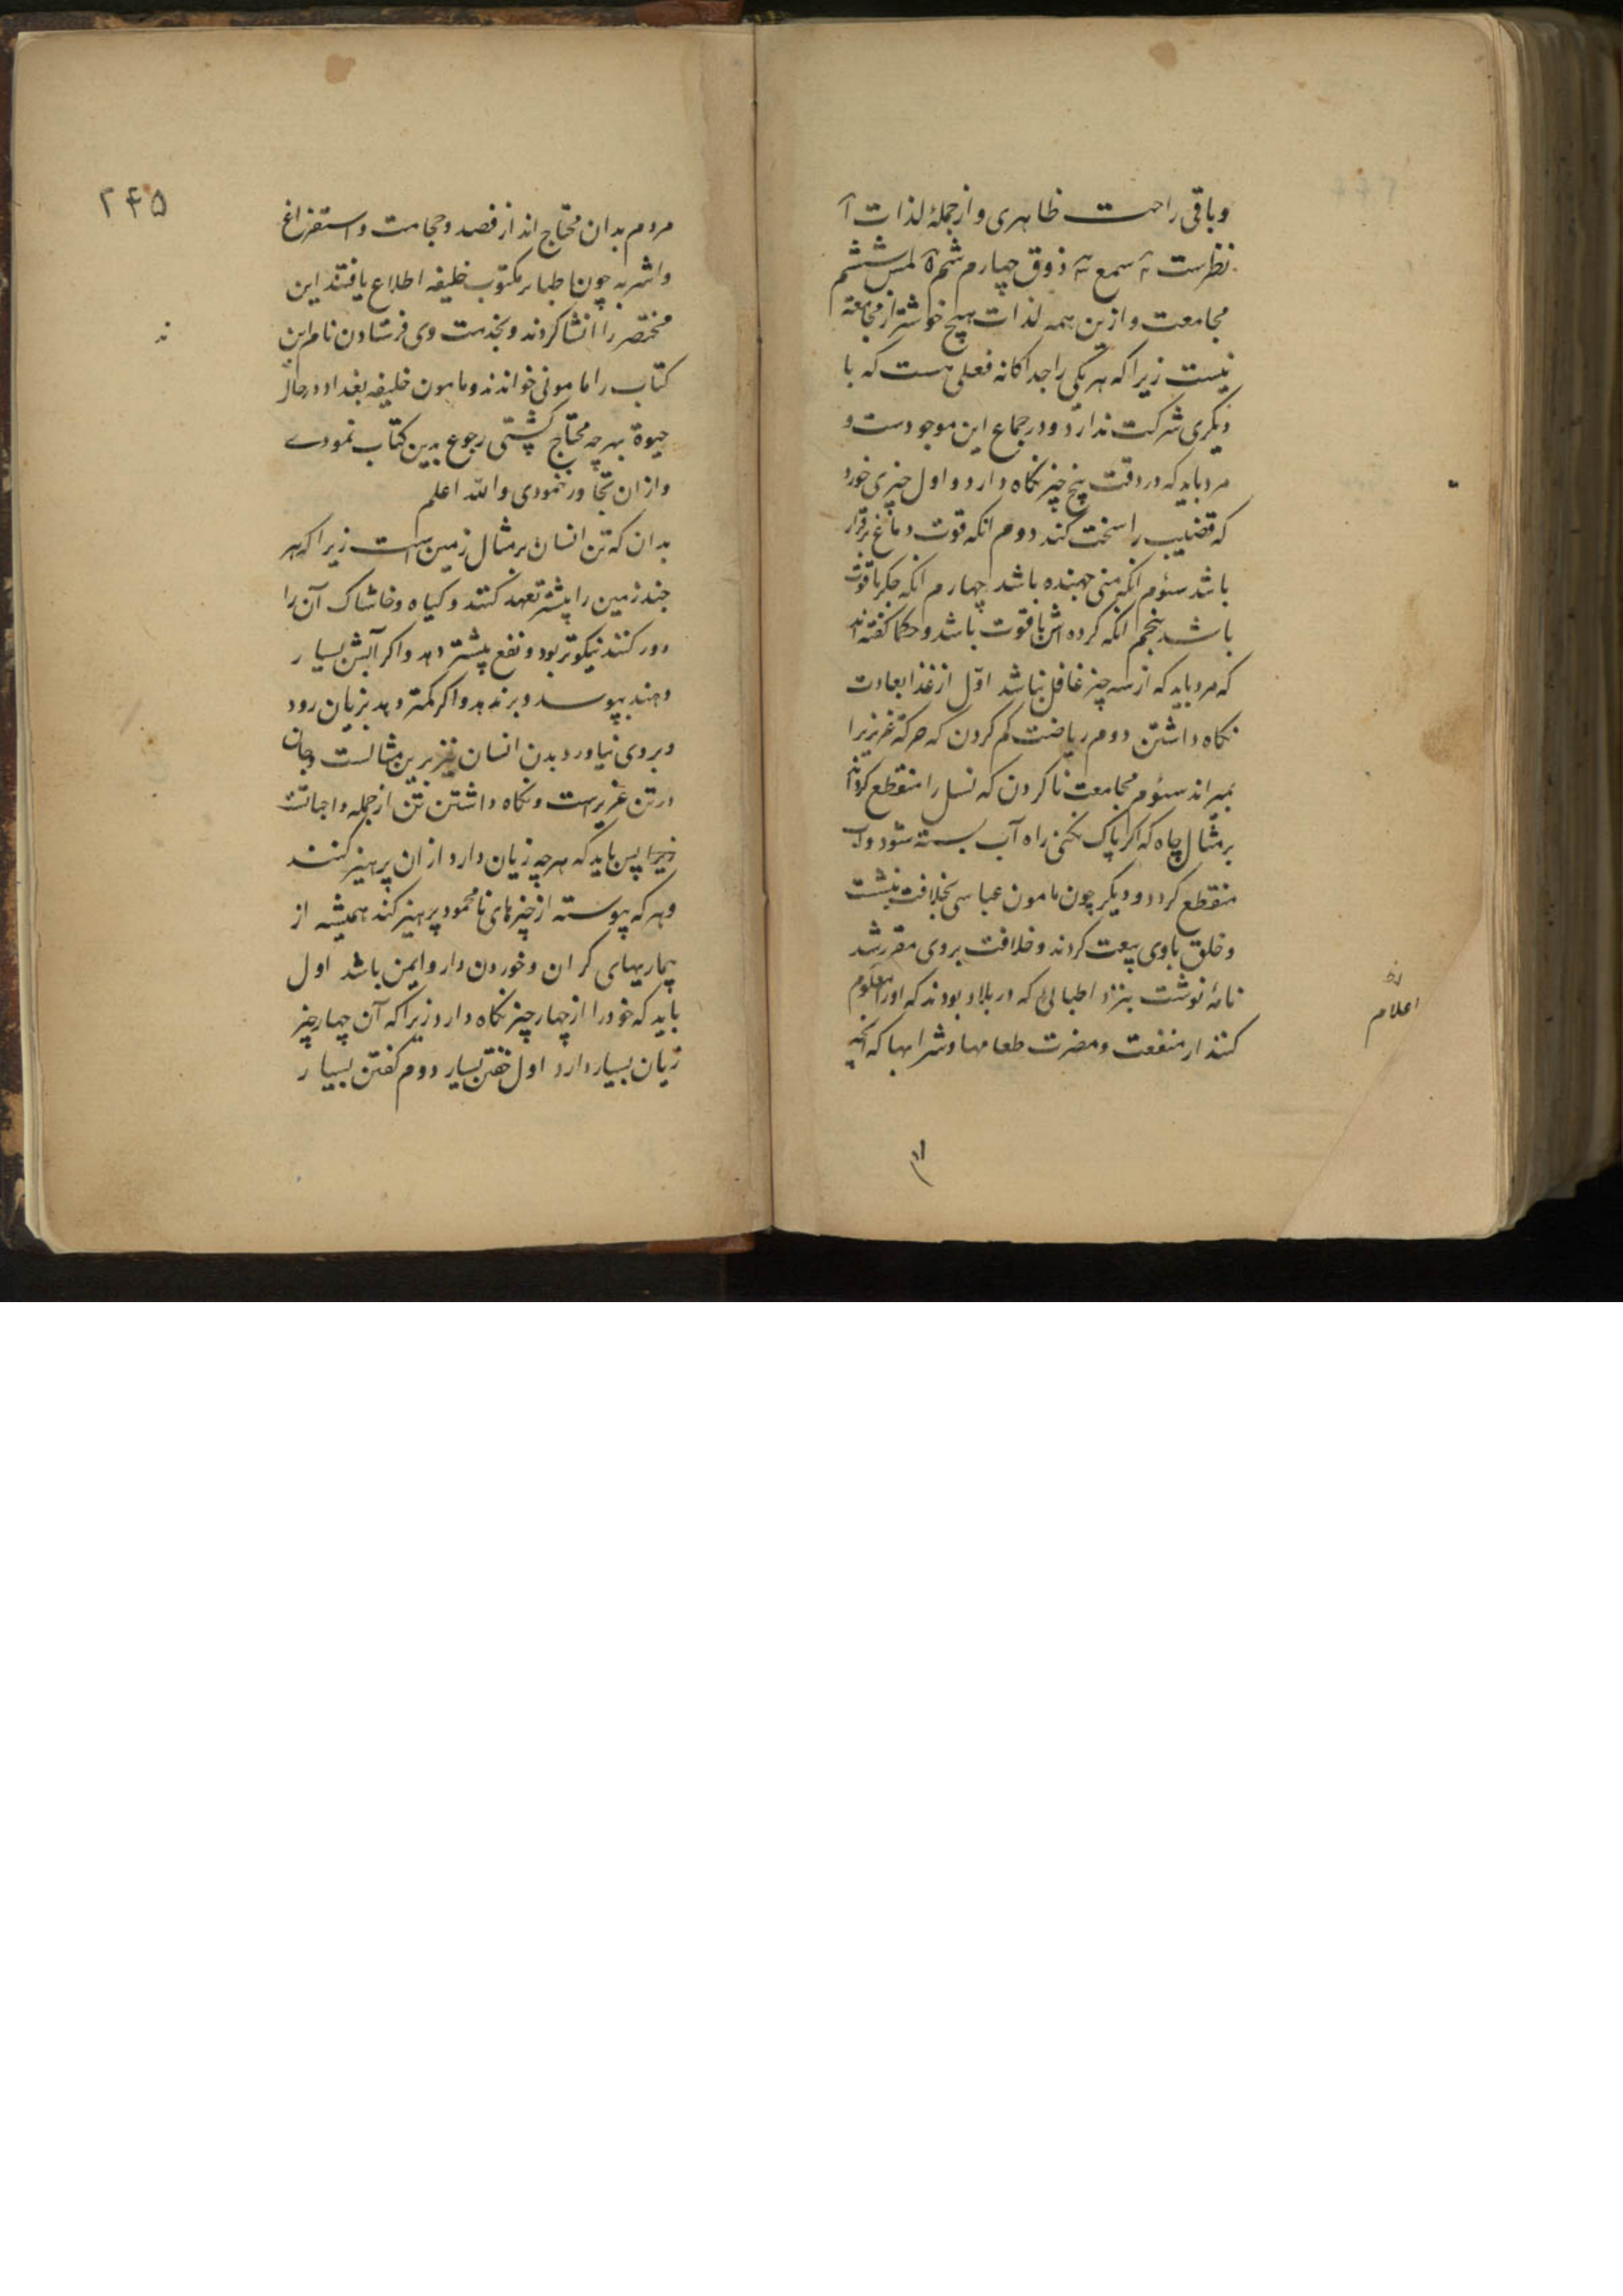 وباقی راحت ظاهری و از جملهٔ لذات آ
نظرست ۲ سمع ۳ ذوق چهارم شم ۵ لمس ششم
مجامعت و ازین همه لذات هیچ خوشتر از مجامعة
نیست زیرا که هر یکی را جداکانه فعلی هست که با
دیکری شرکت ندارد و در جماع این موجودست و
مرد باید که در وقت پنج چیز نکاه دارد و اول چیزی خورد
که قضیب را سخت کند دوم انکه قوت دماغ برقرار
باشد سئوم انکه منی جهنده باشد چهارم انکه جکر باقوت
باشد پنجم انکه کرده اش باقوت باشد و حکما کفته اند
که مرد باید که از سه چیز غافل نباشد اوّل از غذا بعادت
نکاه داشتن دوم ریاضت کم کردن که حرکة غریزیرا
بمیراند سئوم مجامعت ناکردن که نسل را منقطع کرداند
بر مثال چاه که اکر پاک نکنی راه آب بسته شود و آب
منقطع کردد و دیکر چون مامون عباسی بخلافت بنشست
و خلق باوی بیعت کردند و خلافت بروی مقرر شد
نامهٔ نوشت بنزد اطبائی که در بلاد بودند که او را معلوم
کنند از منفعت و مضرت طعامها و شرابها که انچه
اعلام
۲۴۵
مردم بدان محتاج اند از فصد و حجامت و استفراغ
و اشربه چون اطبا بر مکتوب خلیفه اطلاع یافتند این
مختصر را انشا کردند و بخدمت وی فرستادن نام این
کتاب را مامونی خواندند و مامون خلیفه بغداد در حال
حیوة بهرچه محتاج کشتی رجوع بدین کتاب نمودے
و از ان تجاوز ننمودی والله اعلم
بدان که تن انسان بر مثال زمین است زیرا که هر
چند زمین را بیشتر تعهد کنند و کیاه و خاشاک آن را
دور کنند نیکوتر بود و نفع بیشتر دهد و اکر آبش بسیار
دهند بپوسد و بر ندهد و اکر کمتر دهد بزیان رود
و بروی نیاورد بدن انسان نیز برین مثالست و جان
در تن غریبست و نکاه داشتن تن از جمله واجباتست
زیرا پس باید که هرچه زیان دارد از ان پرهیز کنند
و هر که پیوسته از چیزهای نامحمود پرهیز کند همیشه از
بیماریهای کران و خوردن دارو ایمن باشد اول
باید که خود را از چهار چیز نکاه دارد زیرا که آن چهار چیز
زیان بسیار دارد اول خفتن بسیار دوم کفتن بسیار